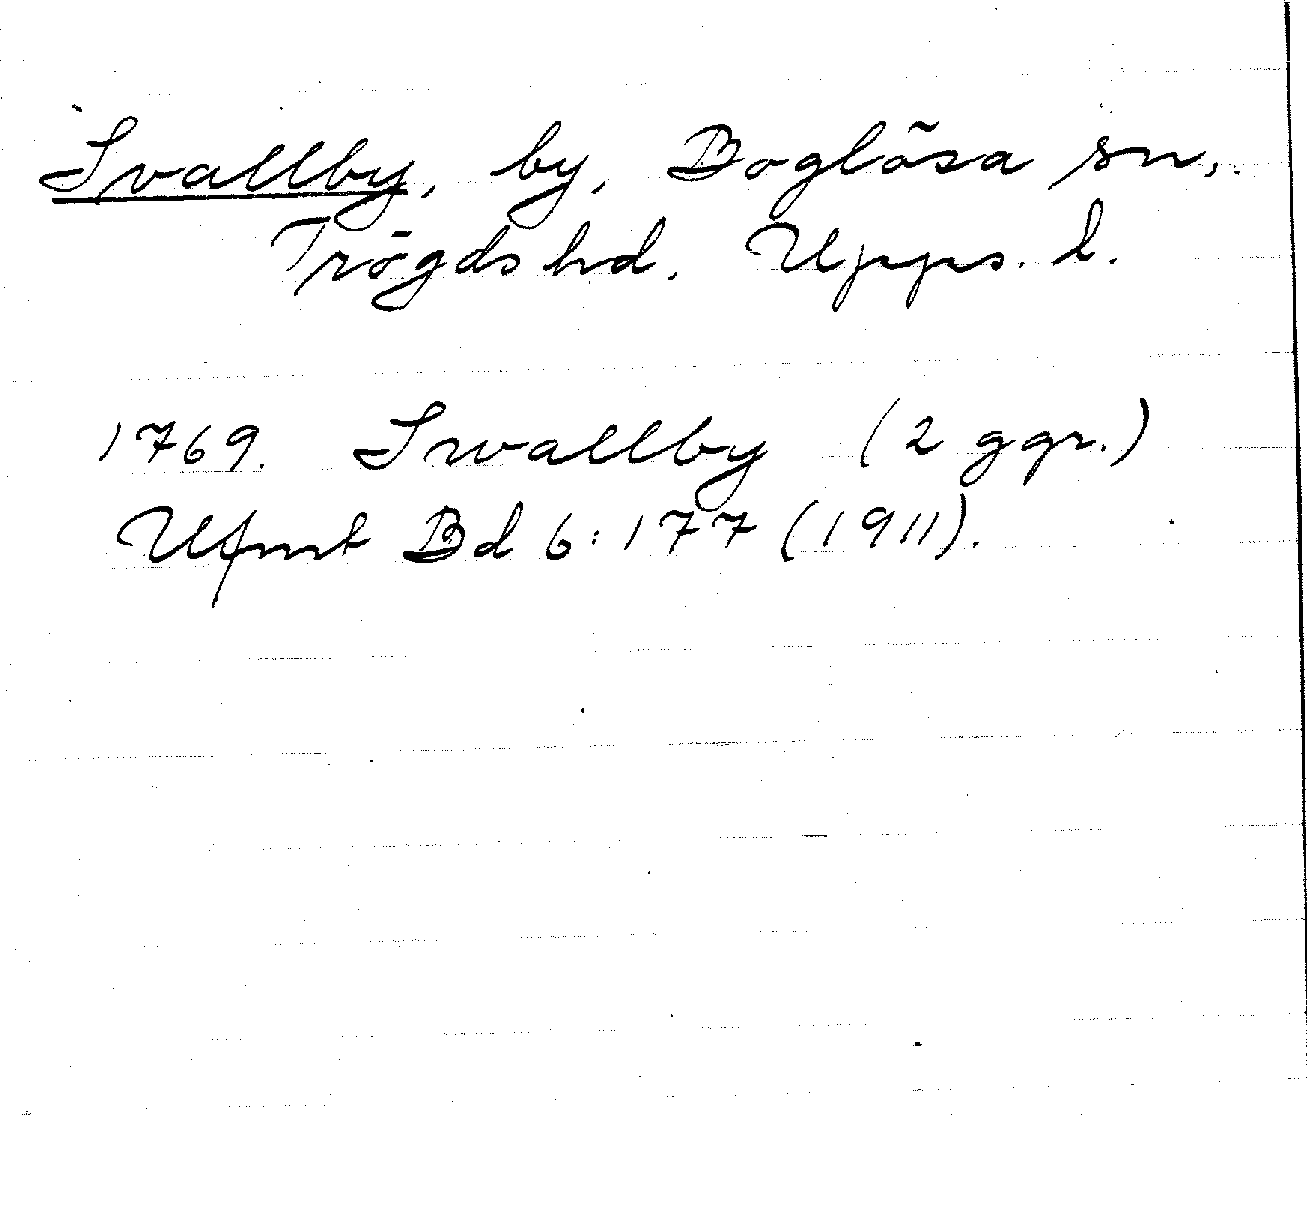 Svallby, by, Boglösa sn,
Trögds hd. Upps. l.
1769. Swallby (2 ggr.)
Ufmt Bd 6:177 (1911).